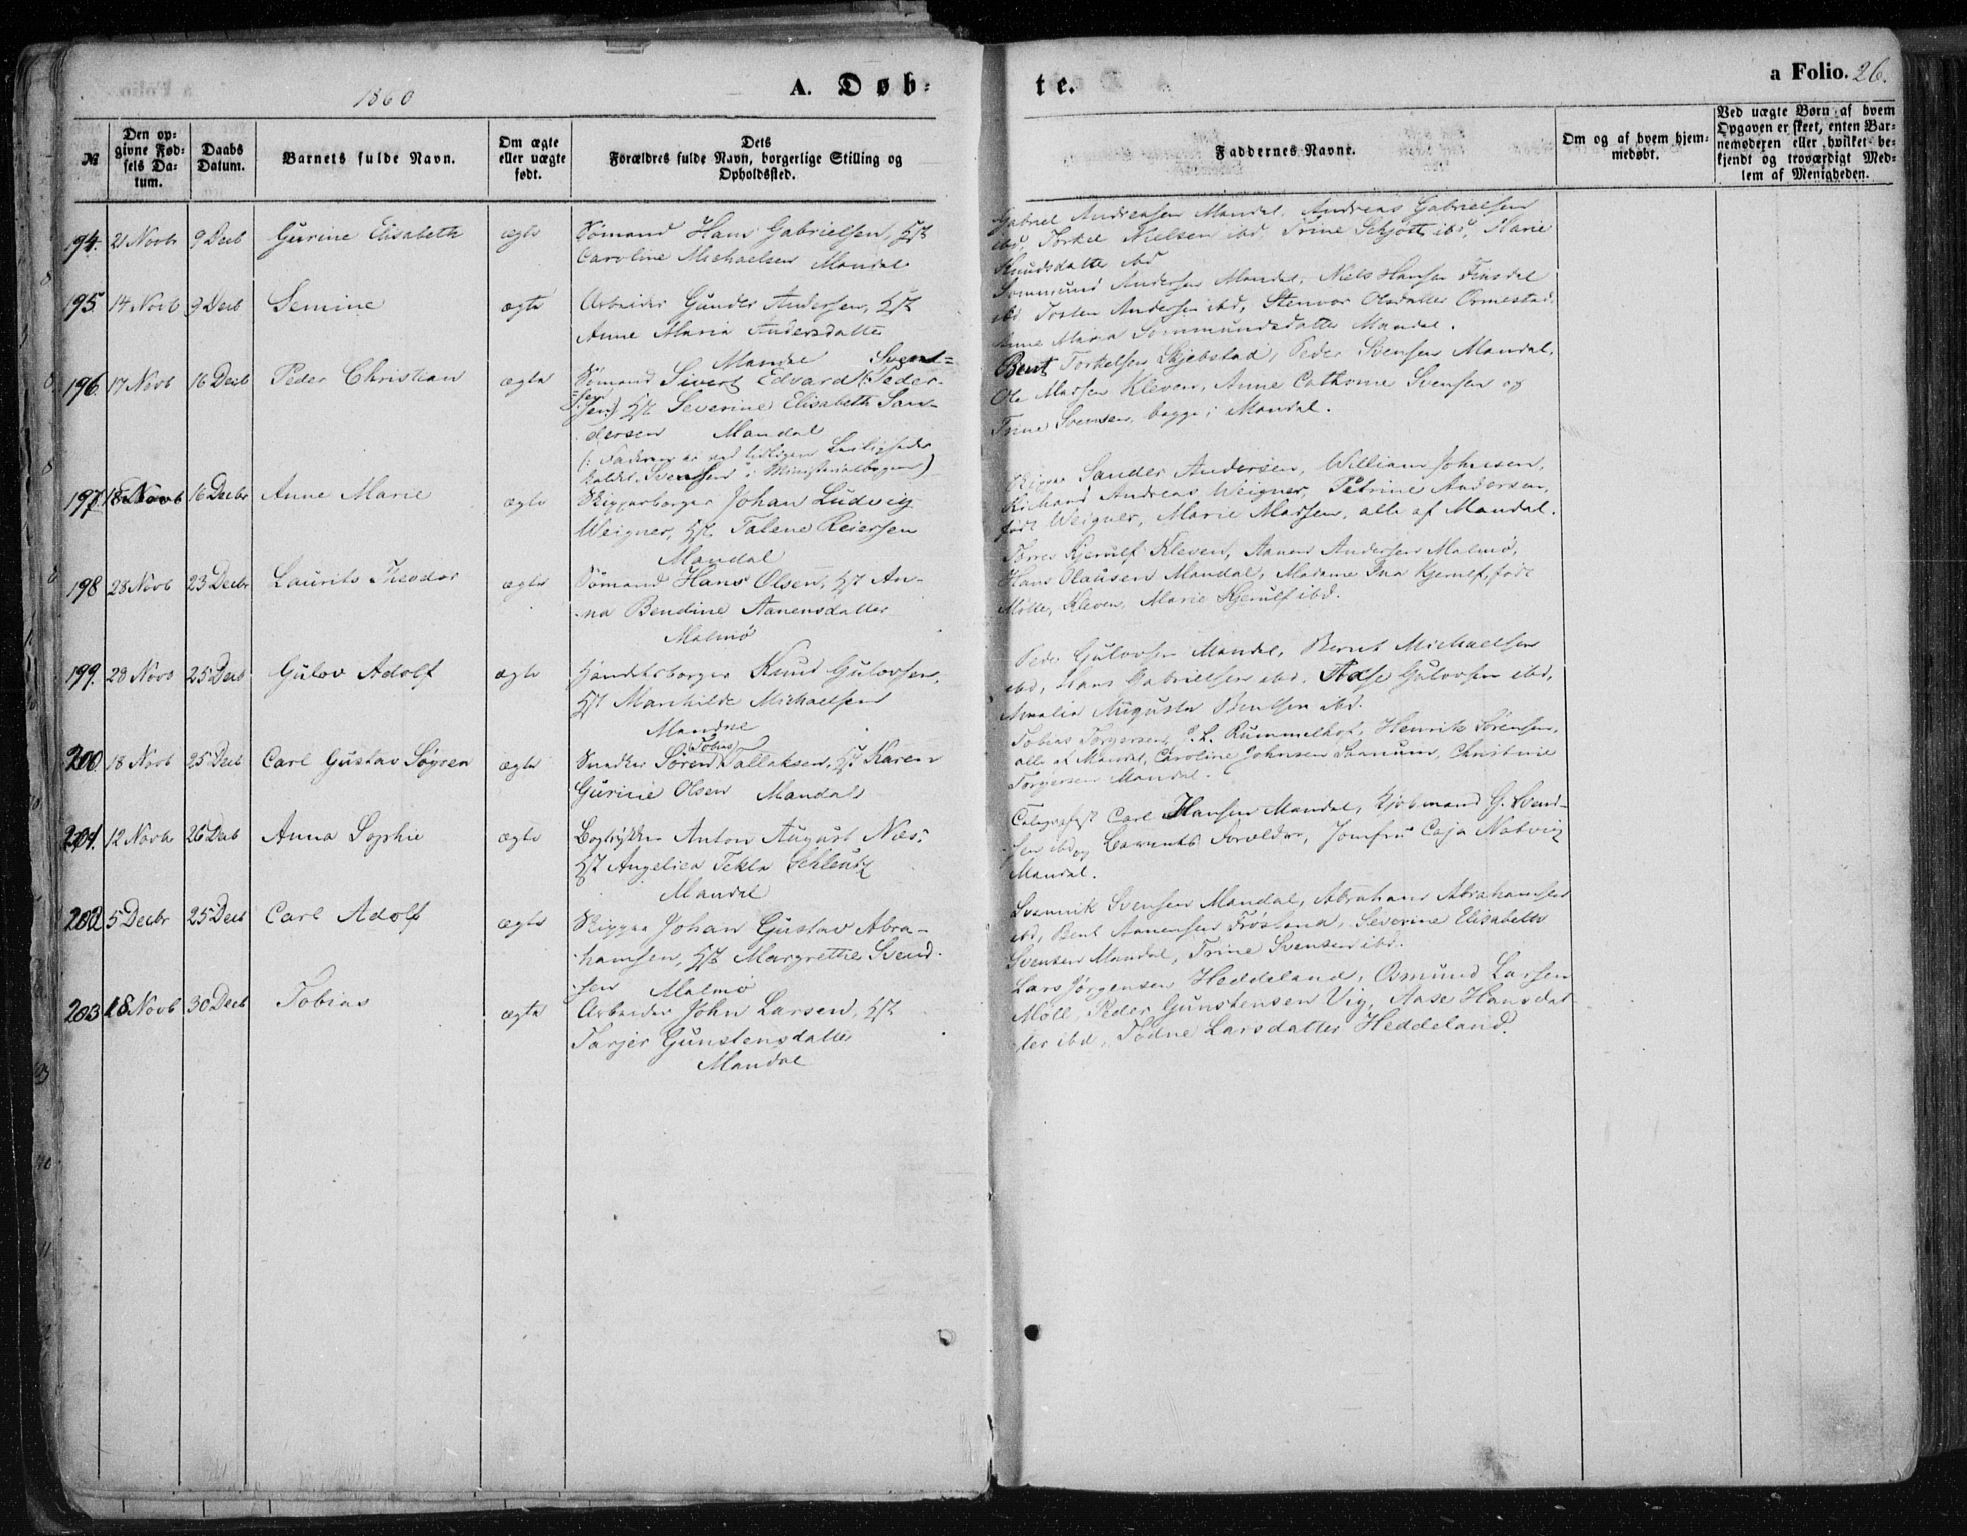 1860
A. Døb-
te.
a Folio. 26.
№
Den op-
givne Fød-
sels Da-
tum.
Daabs
Datum.
Barnets fulde Navn.
Om ægte
eller uægte
født.
Dets
Forældres fulde Navn, borgerlige Stilling og
Opholdssted.
Faddernes Navne.
Om og af hvem hjem-
medøbt.
Ved uægte Børn af hvem
Opgaven er skeet, enten Bar-
nemoderen eller hvilket be-
kjendt og troværdigt Med-
lem af Menigheden.
194. 21 Novb 9 Decb Gurine Elisabeth ægte Sømand Hans Gabrielsen, Hst
Caroline Michaelsen Mandal
Gabriel Andreasen Mandal, Andreas Gabrielsen
ibd, Torkel Nielsen ibd, Trine Schjøtt ibd, Marie
Knudsdatte ibd
195. 14 Novb 9 Decb Semine ægte Arbeider Gunder Andersen, Hst
Anne Maria Andersdatter
Mandal
Sommund Andersen Mandal, Niels Hansen
ibd Andersen ibd, Stenvor Olsdatter Ormestad,
Anne Maria Sommundsdatter Mandal.
196. 17 Novb 16 Decb Peder Christian ægte Sømand Sivert Edvard (: Peder-
sen) Hst Severine Elisabeth San-
dersen Mandal
(: Faderen er ved Leilighed
kaldet Svensen i Ministerialbogen)
Bent Torkelsen Skjebstad, Peder Svensen Mandal,
Ole Madsen Kleven, Anne Cathrine Svensen og
Trine Svensen, begge i Mandal.
197. 18 Novb 16 Decbr Anne Marie ægte Skipperborger Johan Ludvig
Weigner, Hst. Talene Reiersen
Mandal
Sander Andersen, William Johnsen,
Richard Andreas Weigner, Petrine Andersen,
født Weigner, Marie Madsen, alle af Mandal.
198 28 Novb 23 Decbr Laurits Theodor ægte Sømand Hans Olsen, Hst An-
na Bendine Aanensdatter
Malmø
Tørres Kjerulf Kleven, Aanen Andersen Malmø,
Hans Olausen Mandal, Madame Ina Kjerulf, født
Møller, Kleven, Marie Kjerulf ibd.
199. 28 Novb 25 Decb Gulov Adolf ægte Handelsborger Knud Gulovsen,
Hst Manhilde Michaelsen
Mandal
Peder Gulovsen Mandal, Bernt Michaelsen
ibd, Hans Gabrielsen ibd, Gulovsen ibd,
Amalia Augusta Bentsen ibd.
200. 18 Novb 25 Decb Carl Gustav Søgren ægte Snedker Søren Tobias Tallaksen, Hst Karen
Gurine Olsen Mandal
Tobias Torgersen, Rummelhof, Henrik Sørensen,
alle af Mandal, Caroline Johnsen, Christine
Torgersen Mandal.
201. 12 Novb 26 Decb Anna Sophie ægte Bogtrykker Anton August Næs,
Hst Angelica Tekla Schlentz
Mandal
Telegrafist Carl Hansen Mandal, Kjøbmand G. Svend-
sen ibd og Barnets Forældre, Jomfru Caja Natvig
Mandal.
202. 5 Decbr 25 Decb Carl Adolf ægte Skipper Johan Gustav Abra-
hamsen, Hst Margrethe Svend-
sen Malmø
Svennik Svensen Mandal, Abraham Abrahamsen
ibd, Bent Aanensen Frøsland, Severine Elisabeth
Svensen Mandal, Trine Svensen ibd.
203 18 Novb 30 Decb Tobias ægte Arbeider John Larsen, Hst
Tarjer Gunstensdatter
Mandal
Lars Jørgensen Heddeland, Osmund Larsen
Møll, Peder Gunstensen Vig, Aase Hansdat-
ter ibd, Todne Larsdatter Heddeland.